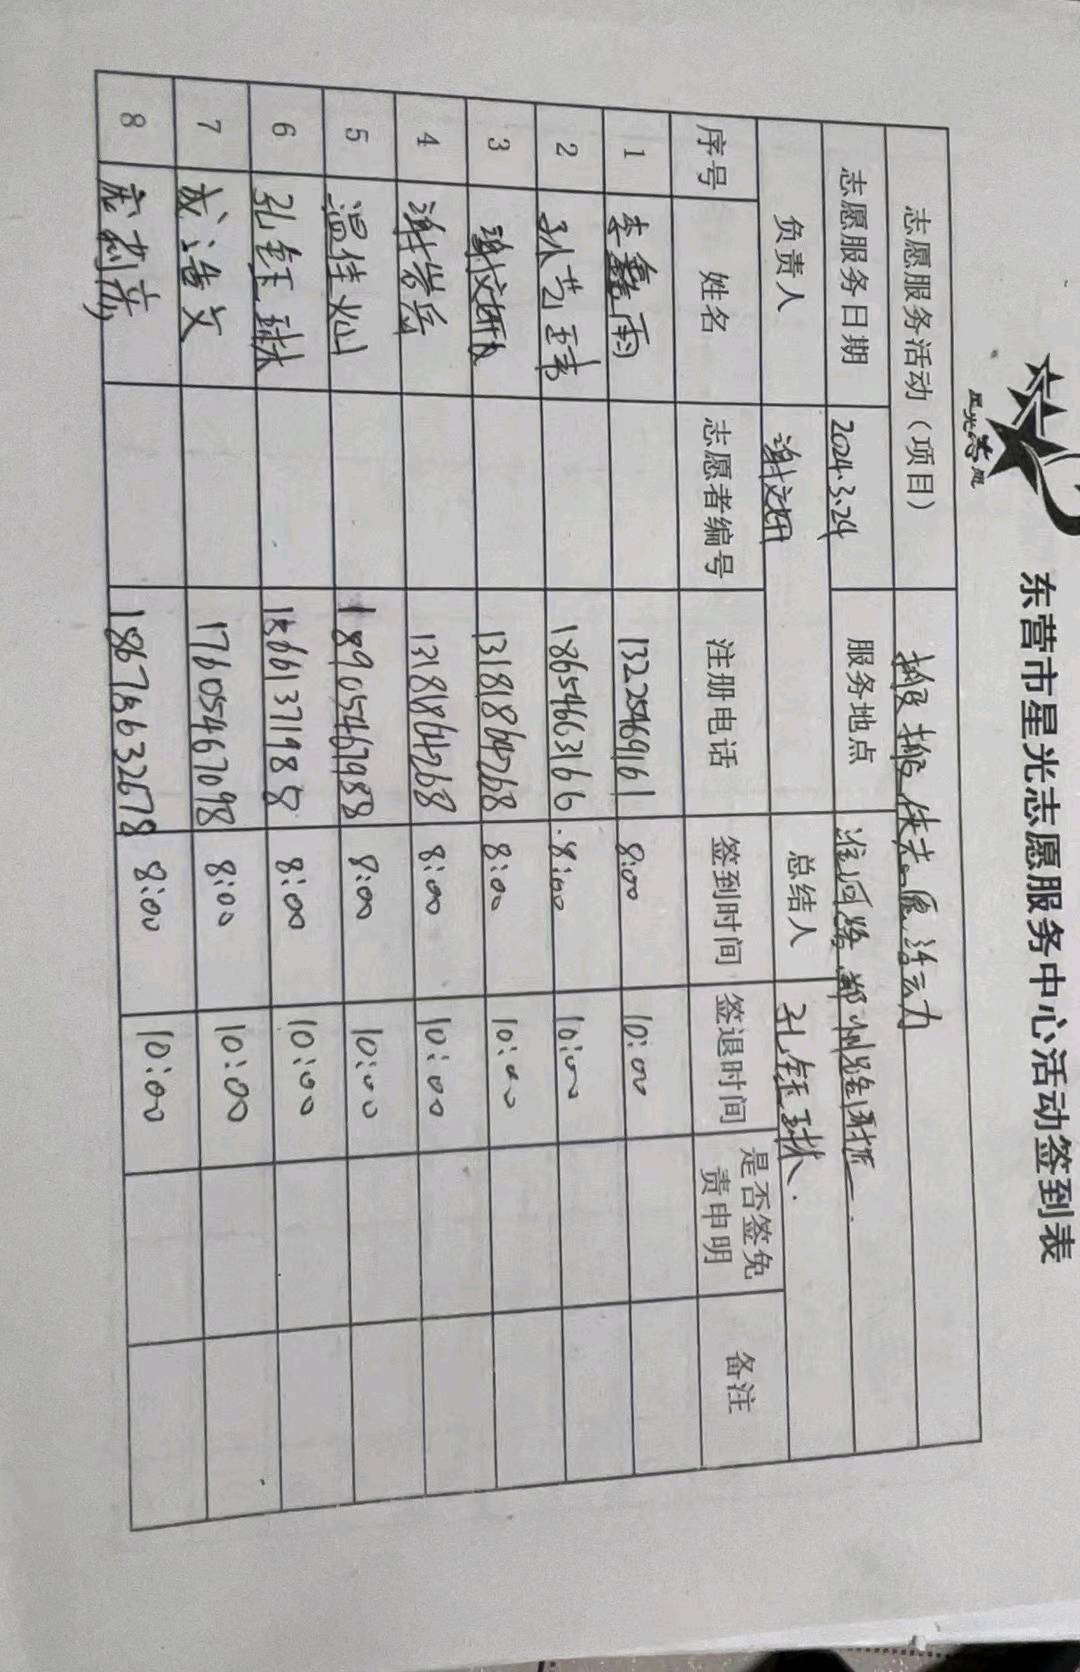 东营市星光志愿服务中心活动签到表
星光志愿
志愿服务活动（项目） 志愿活动
志愿服务日期 2024.3.24 服务地点 淮河路郑州路
负责人 谢文妍 总结人 孔钰琳.
序号 姓名 志愿者编号 注册电话 签到时间 签退时间 是否签免责申明 备注
1 李鑫雨 13225469161 8:00 10:00
2 孙艺玮 18654663166 8:00 10:00
3 谢文妍 13181864268 8:00 10:00
4 谢岩岳 13181864268 8:00 10:00
5 温佳灿 18905467988 8:00 10:00
6 孔钰琳 8:00 10:00
7 成浩文 17605467098 8:00 10:00
8 8:00 10:00